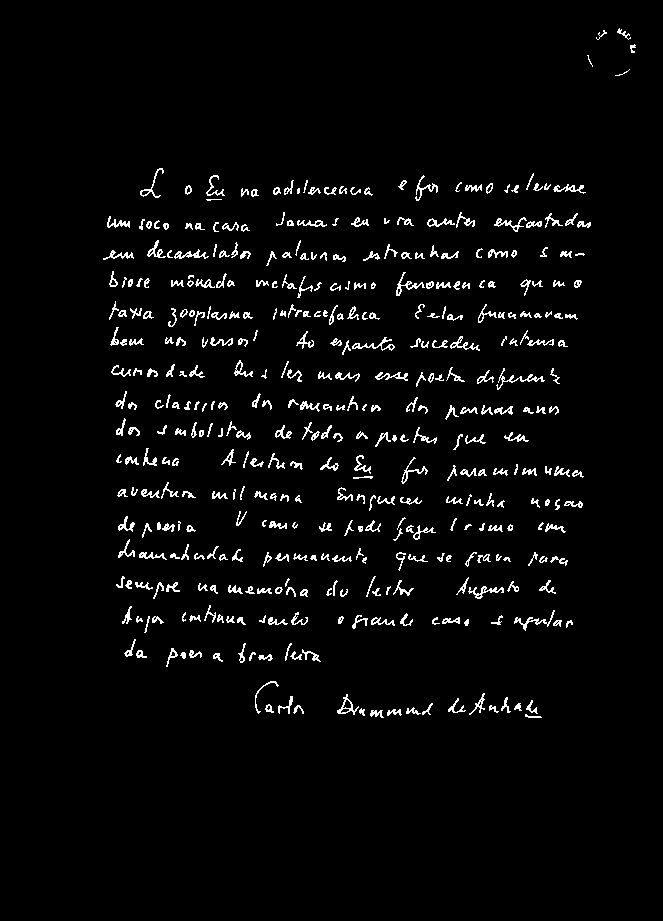 Li o Eu na adolescência e foi como se levasse
um soco na cara. Jamais eu vira antes, engastadas
em decassílabos, palavras estranhas como sim-
biose, mônada, metafisicismo, fenomênica, quimio-
taxia, zooplasma, intracefálica... E elas funcionavam
bem nos versos! Ao espanto sucedeu intensa
curiosidade. Quis ler mais esse poeta diferente
dos clássicos, dos românticos, dos parnasianos,
dos simbolistas, de todos os poetas que eu
conhecia. A leitura do Eu foi para mim uma
aventura milionária. Enriqueceu minha noção
de poesia. Vi como se pode fazer lirismo com
dramaticidade permanente, que se grava para
sempre na memória do leitor. Augusto de
Anjos continua sendo o grande caso singular
da poesia brasileira.
Carlos Drummond de Andrade